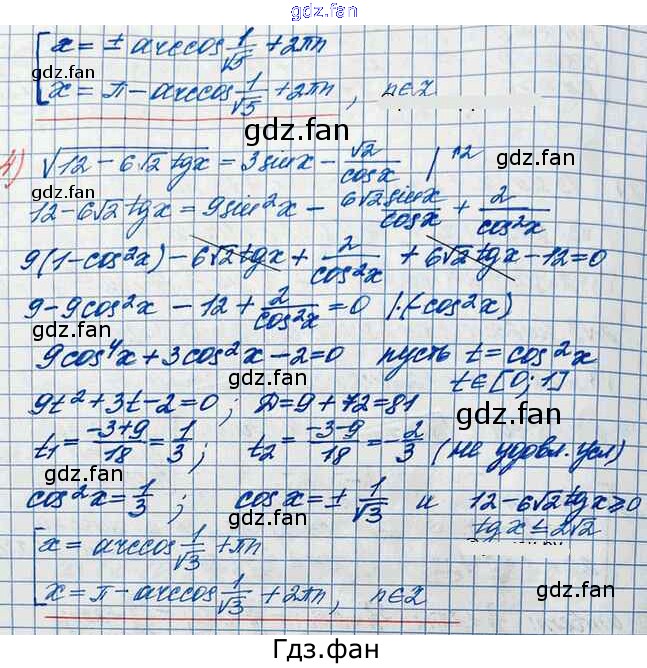 gdz.fan
x = ± arccos 1/√5 + 2πn
gdz.fan
x = π - arccos 1/√5 + 2πn, n∈Z
gdz.fan
4) √(12 - 6√2 tgx) = 3sinx - √2/cosx | ^2
gdz.fan
12 - 6√2 tgx = 9sin²x - 6√2 sinx/cosx + 2/cos²x
9(1 - cos²x) - 6√2 tgx + 2/cos²x + 6√2 tgx - 12 = 0
gdz.fan
gdz.fan
9 - 9cos²x - 12 + 2/cos²x = 0 |·(-cos²x)
gdz.fan
9cos⁴x + 3cos²x - 2 = 0 пусть t = cos²x
gdz.fan
t∈[0; 1]
9t² + 3t - 2 = 0; D = 9 + 72 = 81
gdz.fan
t₁ = (-3+9)/18 = 1/3; t₂ = (-3-9)/18 = -2/3 (не удовл. усл)
gdz.fan
gdz.fan
cos²x = 1/3; cosx = ± 1/√3 и 12 - 6√2 tgx ≥ 0
gdz.fan
tgx ≤ 2√2
x = arccos 1/√3 + πn
gdz.fan
gdz.fan
x = π - arccos 1/√3 + 2πn, n∈Z
gdz.fan
Гдз.фан